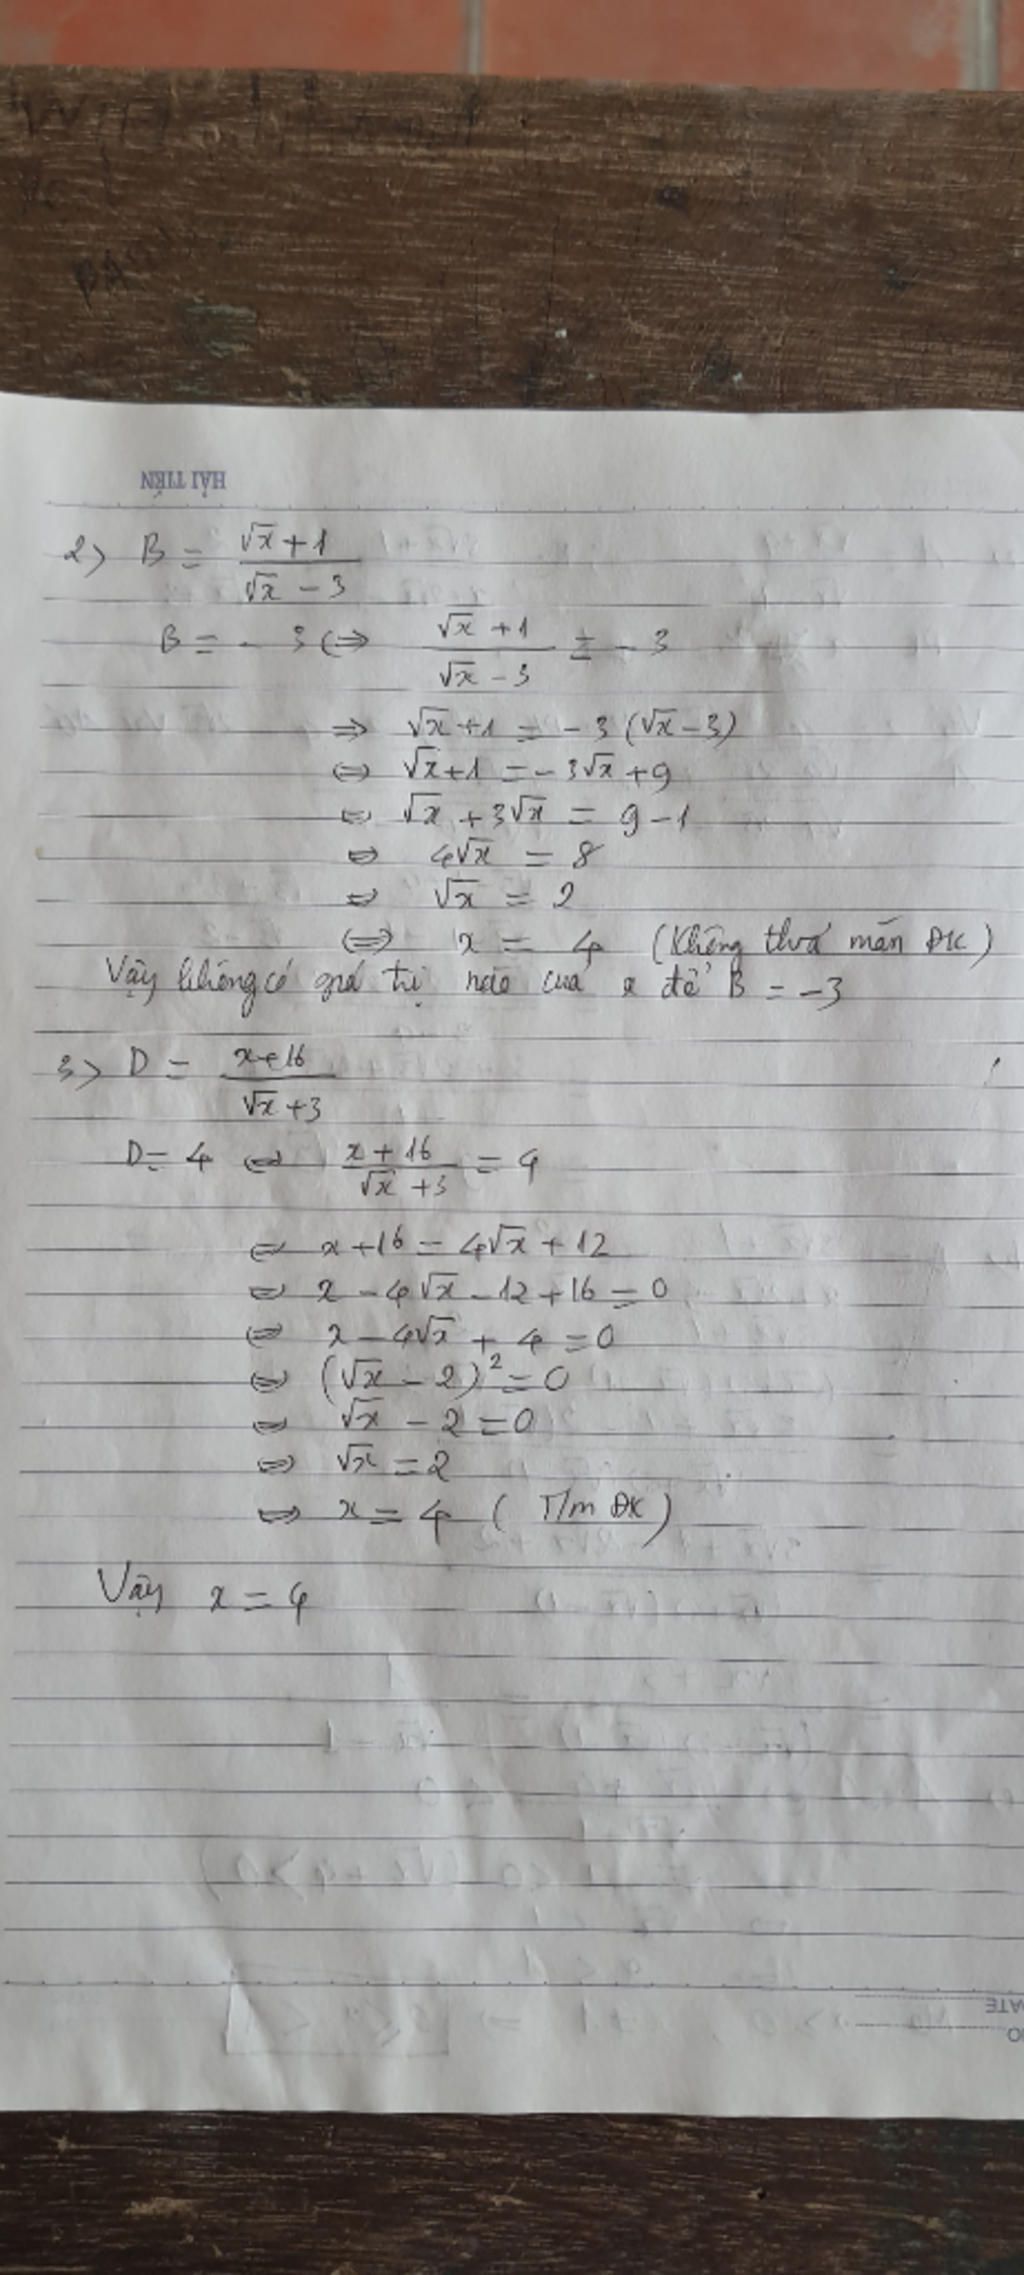 HẢI TIẾN
2> B = (√x + 1)/(√x - 3)
B = - 3 <=> (√x + 1)/(√x - 3) = - 3
=> √x + 1 = - 3 (√x - 3)
<=> √x + 1 = - 3√x + 9
<=> √x + 3√x = 9 - 1
<=> 4√x = 8
<=> √x = 2
<=> x = 4 (Không thoả mãn ĐK)
Vậy không có giá trị nào của x để B = -3
3> D = (x + 16)/(√x + 3)
D = 4 <=> (x + 16)/(√x + 3) = 4
<=> x + 16 = 4√x + 12
<=> x - 4√x - 12 + 16 = 0
<=> x - 4√x + 4 = 0
<=> (√x - 2)² = 0
<=> √x - 2 = 0
<=> √x = 2
<=> x = 4 ( T/m ĐK)
Vậy x = 4
DATE
NO